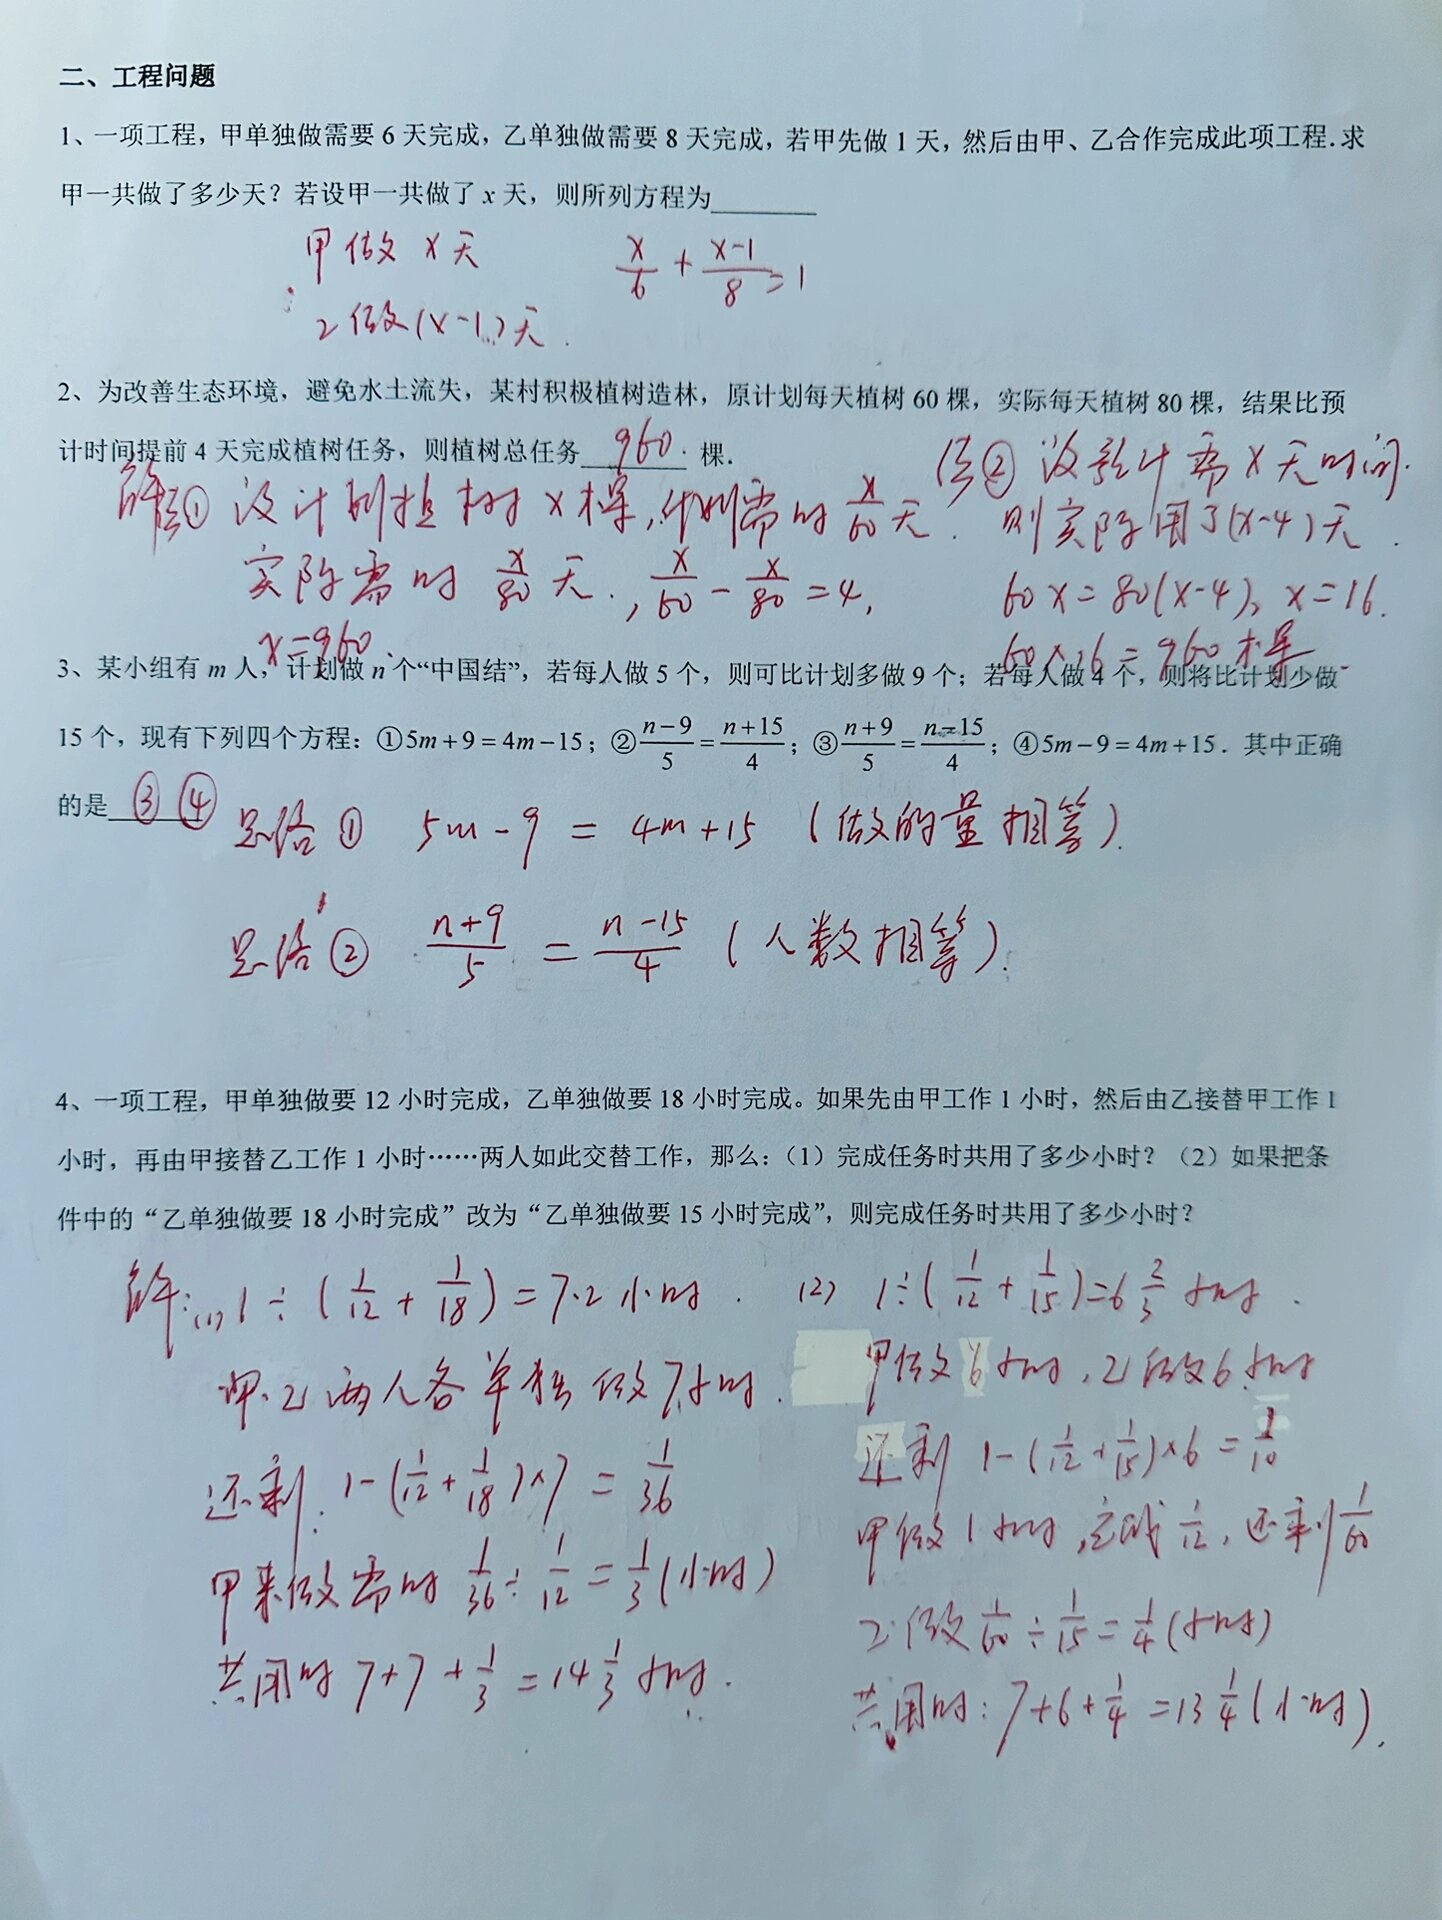 二、工程问题
1、一项工程，甲单独做需要 6 天完成，乙单独做需要 8 天完成，若甲先做 1 天，然后由甲、乙合作完成此项工程．求
甲一共做了多少天？若设甲一共做了 x 天，则所列方程为________
甲做 x 天
x/6 + (x-1)/8 = 1
乙做(x-1)天.
2、为改善生态环境，避免水土流失，某村积极植树造林，原计划每天植树 60 棵，实际每天植树 80 棵，结果比预
计时间提前 4 天完成植树任务，则植树总任务 960 棵．
解法① 设计划植树 x 棵，计划需时 x/60 天.
实际需时 x/80 天., x/60 - x/80 = 4,
x=960.
法② 设预计需 x 天时间.
则实际用了(x-4)天.
60x=80(x-4), x=16.
60×16=960棵.
3、某小组有 m 人，计划做 n 个“中国结”，若每人做 5 个，则可比计划多做 9 个；若每人做 4 个，则将比计划少做
15 个，现有下列四个方程：①5m+9=4m-15；②(n-9)/5=(n+15)/4；③(n+9)/5=(n-15)/4；④5m-9=4m+15．其中正确
的是 ③ ④
思路① 5m-9 = 4m+15 (做的量相等).
思路② (n+9)/5 = (n-15)/4 (人数相等).
4、一项工程，甲单独做要 12 小时完成，乙单独做要 18 小时完成。如果先由甲工作 1 小时，然后由乙接替甲工作 1
小时，再由甲接替乙工作 1 小时……两人如此交替工作，那么：（1）完成任务时共用了多少小时？（2）如果把条
件中的“乙单独做要 18 小时完成”改为“乙单独做要 15 小时完成”，则完成任务时共用了多少小时？
解:(1) 1÷(1/12+1/18)=7.2小时.
甲.乙两人各单独做7小时.
还剩: 1-(1/12+1/18)×7=1/36
甲来做需时 1/36÷1/12=1/3(小时)
共用时 7+7+1/3=14 1/3 小时.
(2) 1÷(1/12+1/15)=6 2/3 小时.
甲做6小时,乙做6小时
还剩 1-(1/12+1/15)×6=1/10
甲做1小时,完成1/12,还剩1/60
乙做1/60÷1/15=1/4(小时)
共用时: 7+6+1/4=13 1/4(小时).